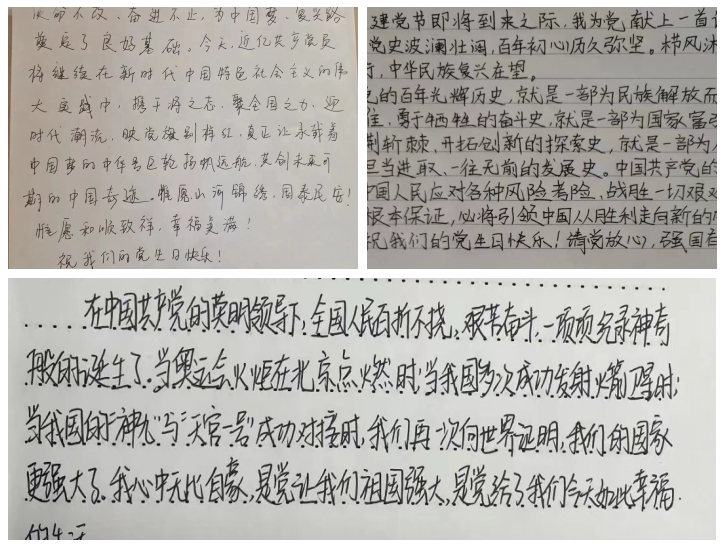 使命不改、奋进不止,为中国梦、复兴路
奠定了良好基础。今天,近亿共产党员
将继续在新时代中国特色社会主义的伟
大实践中,携手将之志、聚全国之力、迎
时代潮流、映党旗别样红,真正让承载着
中国梦的中华号巨轮扬帆远航,共创未来可
期的中国奇迹。惟愿山河锦绣,国泰民安!
惟愿和顺致祥,幸福美满!
祝我们的党生日快乐!
建党节即将到来之际,我为党献上一首
党史波澜壮阔,百年初心历久弥坚。栉风沐
,中华民族复兴在望。
的百年光辉历史,就是一部为民族解放而
勇于牺牲的奋斗史,就是一部为国家富强
荆斩棘、开拓创新的探索史,就是一部为
担当进取、一往无前的发展史。中国共产党的
中国人民应对各种风险考验、战胜一切艰难
根本保证,必将引领中国从胜利走向新的
祝我们的党生日快乐!请党放心,强国有
在中国共产党的英明领导下,全国人民百折不挠,艰苦奋斗,一项项纪录神奇
般的诞生了。当奥运会火炬在北京点火燃时;当我国多次成功发射火箭卫星时;
当我国的“神九”与“天宫一号”成功对接时,我们再一次向世界证明,我们的国家
更强大了。我心中无比自豪,是党让我们祖国强大,是党给了我们今天如此幸福
的生活